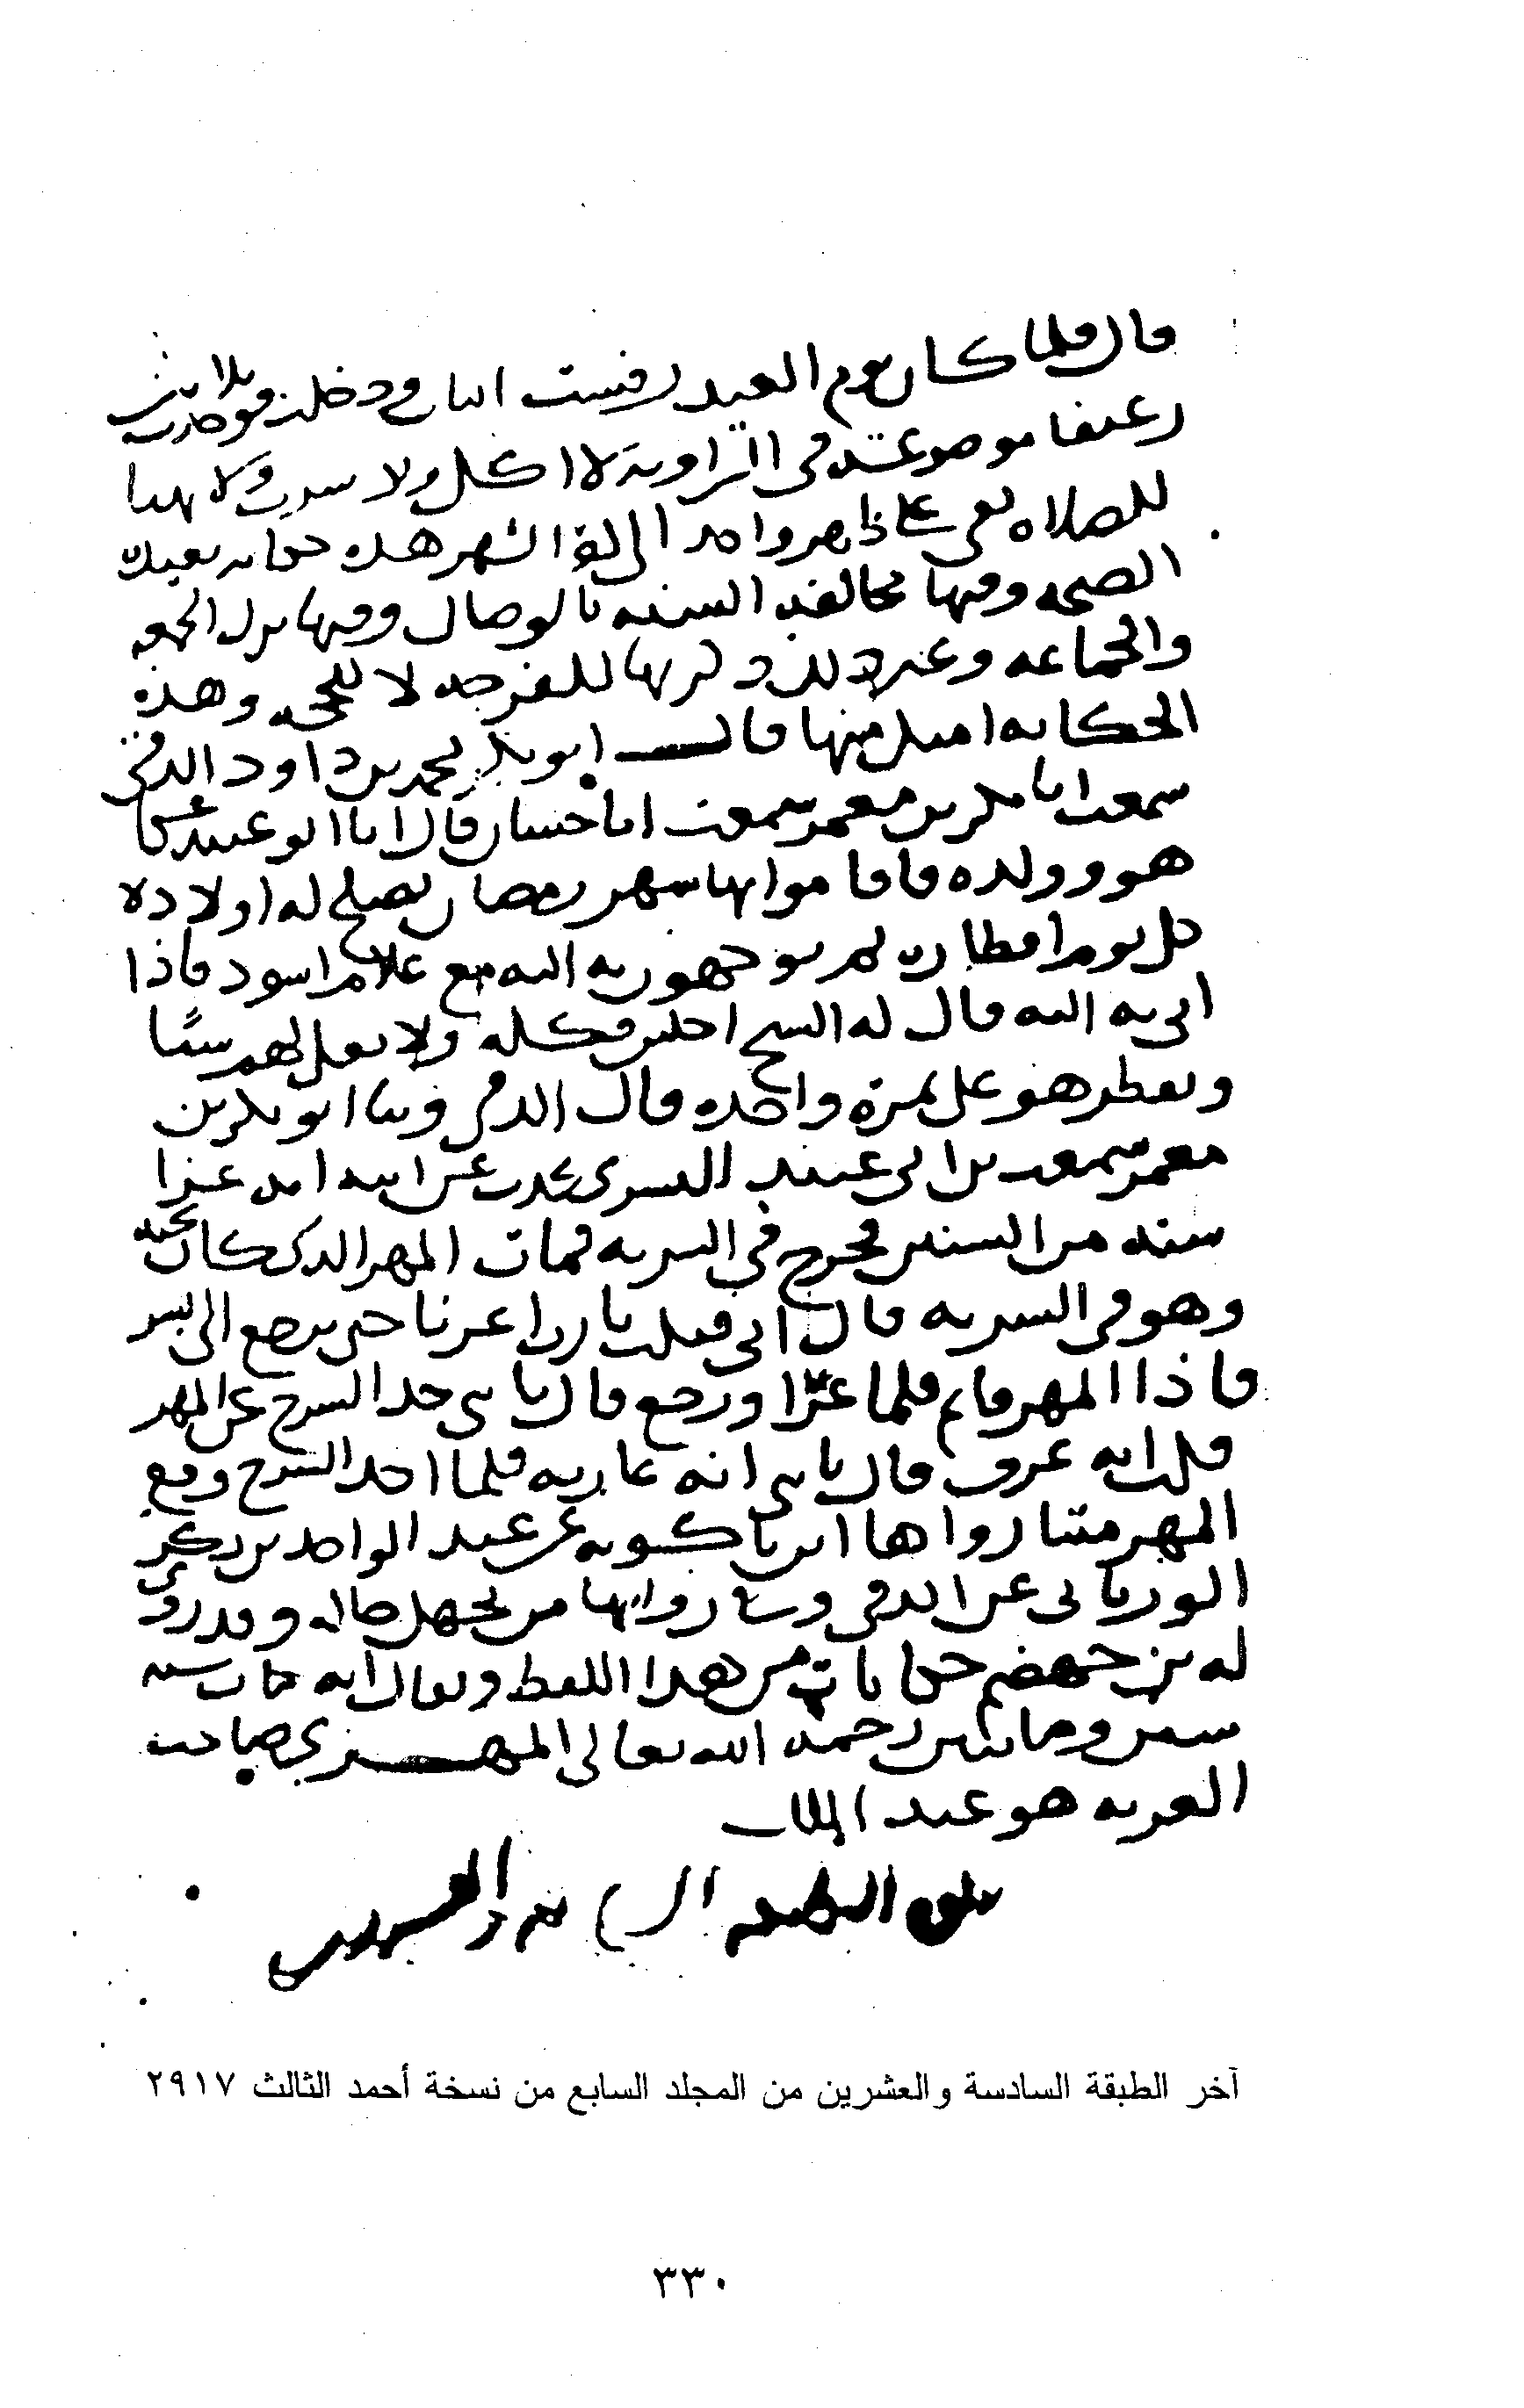 قال فلما كان يوم العيد رفست الباب ودخلت فوجدت ثلاثين
رغيفا موضوعة في الزاوية لا اكل ولا شرب ولا تهيأ
للصلاة بقي على طهر واحد الى اخر الشهر هذه حكاية بعيدة
الصحة وفيها مخالفة السنة بالوصال وفيها ترك الجمعة
والجماعة وغير ذلك ذكرتها للفرجة لا للحجة وهذه
الحكاية امثل منها قال ابو بكر محمد بن داود الدقي
سمعت ابا بكر بن معمر سمعت ابا حسان قال اتانا ابو عبيد عكا
هو وولده فاقاموا بها شهر رمضان يصلح له اولاده
كل يوم افطاره ثم يوجهون به اليه مع غلام اسود فاذا
اتى به اليه قال له الشيخ اجلس فكله ولا تقل لهم شيئا
ويفطر هو على تمرة واحدة قال الدقي وثنا ابو بكر بن
معمر سمعت بن ابي عبيد البسري يحدث عن ابيه انه غزا
سنة من السنين فخرج في السرية فمات المهر الذي كان تحته
وهو في السرية قال ابي فقلت يا رب اعرنا حتى نرجع الى بسر
فاذا المهر قائم فلما غزا ورجع قال يا بني خذ السرج عن المهر
قلت انه عرق قال يا بني انه عارية فلما اخذ السرج وقع
المهر ميتا رواها ابن باكويه عن عبد الواحد بن بكر
الورثاني عن الدقي وسائر رواتها من يجهل حاله وقد روى
له بن جهضم حكايات من هذا اللفظ ويقال انه مات سنة
ستين ومائتين رحمه الله تعالى المهري صاحب
العربية هو عبد الملك
آخر الطبقة السادسة والعشرين من المجلد السابع من نسخة أحمد الثالث ٢٩١٧
٣٣٠